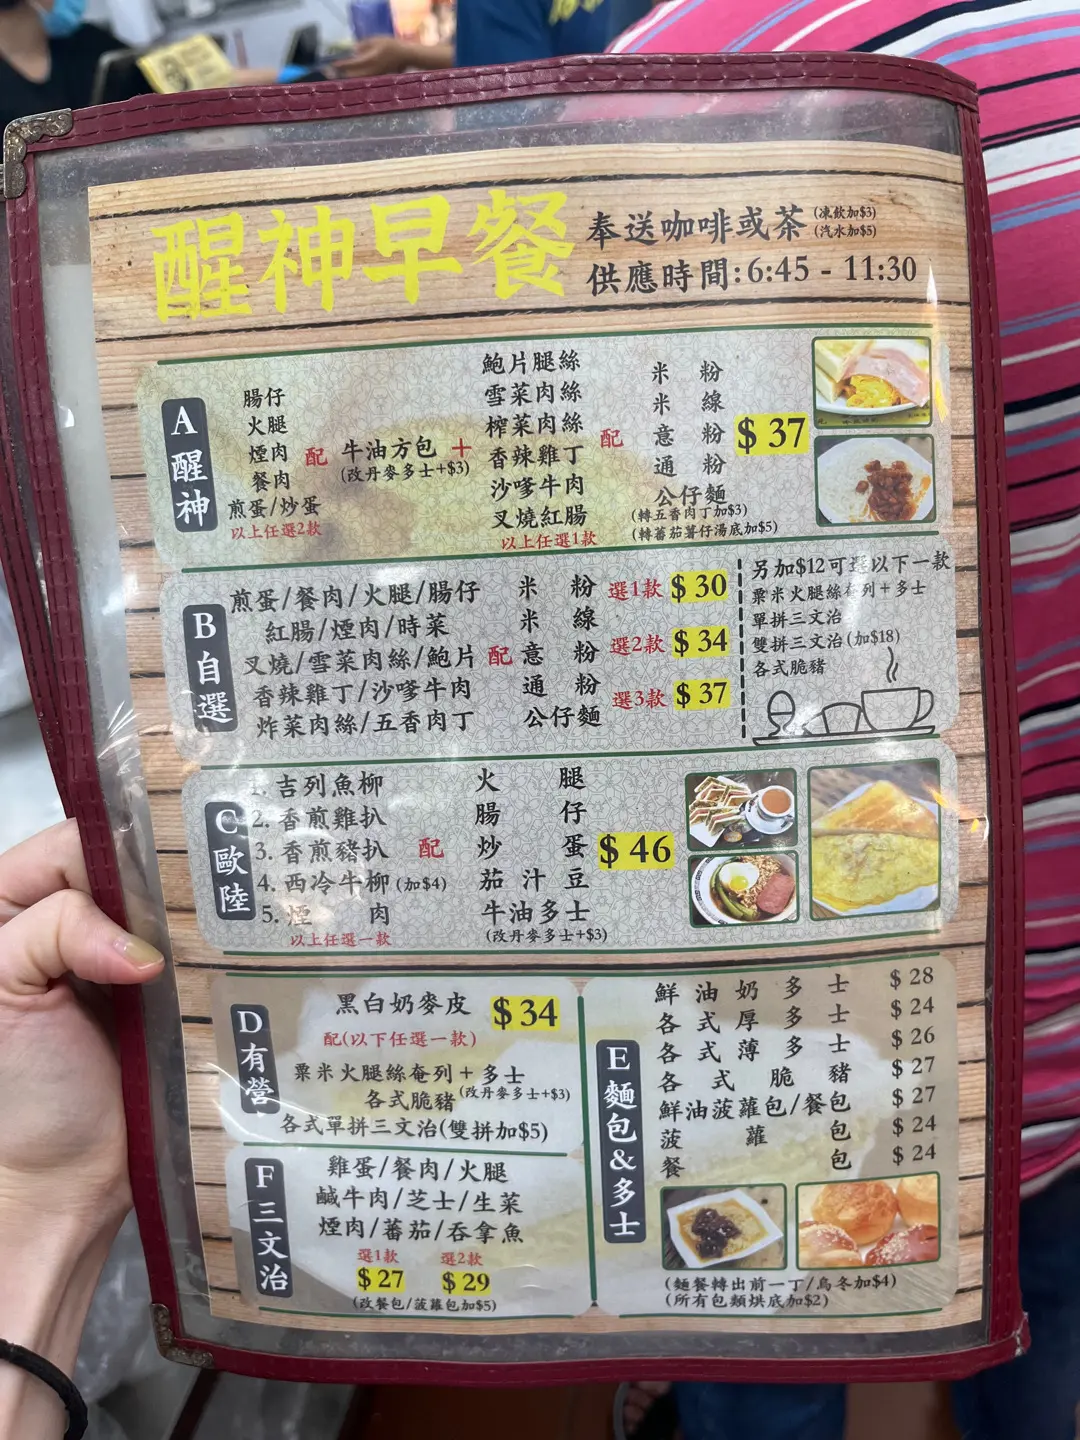 醒神早餐
奉送咖啡或茶 (凍飲加$3) (汽水加$5)
供應時間:6:45 - 11:30
A 醒神
腸仔
火腿
煙肉
餐肉
煎蛋/炒蛋
以上任選2款
配
牛油方包
(改丹麥多士+$3)
+
鮑片腿絲
雪菜肉絲
榨菜肉絲
香辣雞丁
沙嗲牛肉
叉燒紅腸
以上任選1款
配
米粉
米線
意粉
通粉
公仔麵
(轉五香肉丁加$3)
(轉蕃茄薯仔湯底加$5)
$ 37
B 自選
煎蛋/餐肉/火腿/腸仔
紅腸/煙肉/時菜
叉燒/雪菜肉絲/鮑片
香辣雞丁/沙嗲牛肉
炸菜肉絲/五香肉丁
配
米粉
米線
意粉
通粉
公仔麵
選1款 $ 30
選2款 $ 34
選3款 $ 37
另加$12可選以下一款
粟米火腿絲奄列+多士
單拼三文治
雙拼三文治(加$18)
各式脆豬
C 歐陸
1. 吉列魚柳
2. 香煎雞扒
3. 香煎豬扒
4. 西冷牛柳(加$4)
5. 煙肉
以上任選一款
配
火腿
腸仔
炒蛋
茄汁豆
牛油多士
(改丹麥多士+$3)
$ 46
D 有營
黑白奶麥皮 $ 34
配(以下任選一款)
粟米火腿絲奄列+多士
(改丹麥多士+$3)
各式脆豬
各式單拼三文治(雙拼加$5)
E 麵包&多士
鮮油奶多士 $ 28
各式厚多士 $ 24
各式薄多士 $ 26
各式脆豬 $ 27
鮮油菠蘿包/餐包 $ 27
菠蘿包 $ 24
餐包 $ 24
(麵餐轉出前一丁/烏冬加$4)
(所有包類烘底加$2)
F 三文治
雞蛋/餐肉/火腿
鹹牛肉/芝士/生菜
煙肉/蕃茄/吞拿魚
選1款 選2款
$ 27 $ 29
(改餐包/菠蘿包加$5)